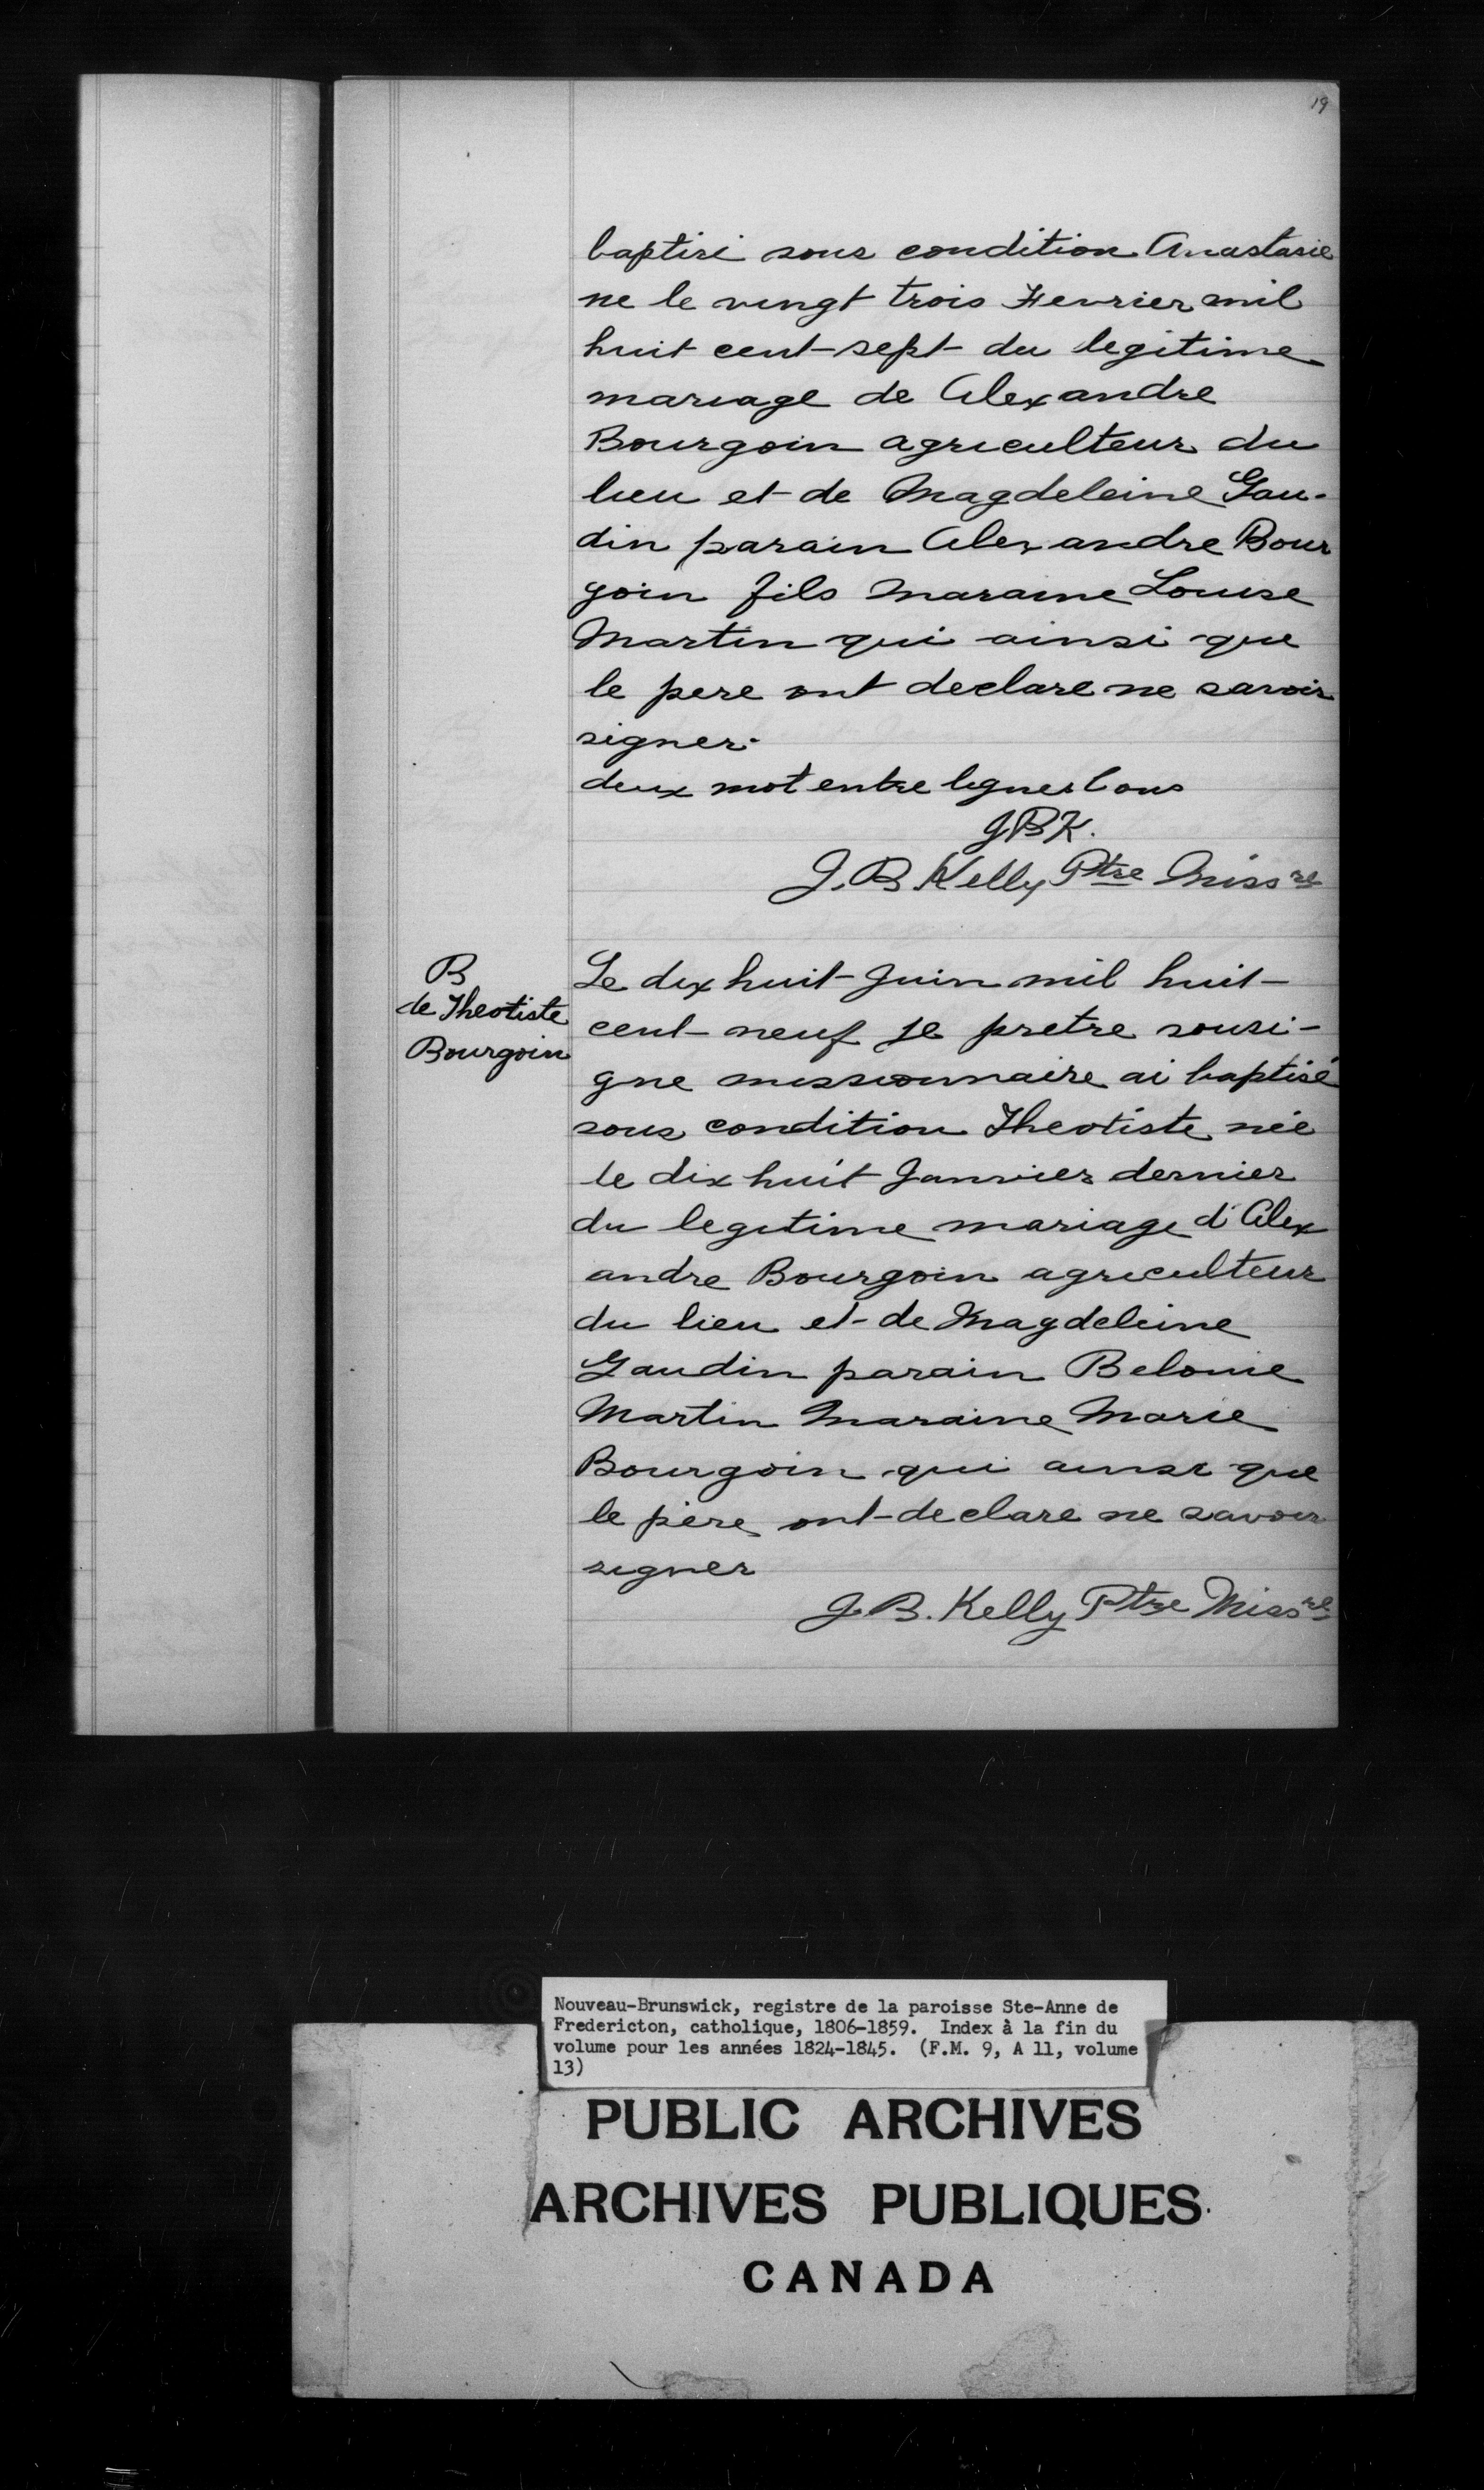 19
baptisé sous condition Anastasie
ne le vingt trois Fevrier mil
huit cent-sept du legitime
mariage de Alexandre
Bourgoin agriculteur du
lieu et de Magdeleine Gau-
din parain Alexandre Bour
goin fils maraine Louise
Martin qui ainsi que
le pere ont declare ne savoir
signer.
deux mot entre lignes bons
JBK.
J. B Kelly Ptre Missre
B
de Theotiste
Bourgoin
Le dix huit Juin mil huit-
cent-neuf je pretre sousi-
gne missionnaire ai baptisé
sous condition Theotiste née
le dix huit Janvier dernier
du legitime mariage d'Alex
andre Bourgoin agriculteur
du lieu et de Magdeleine
Gaudin parain Belonie
Martin maraine Marie
Bourgoin qui ainsi que
le père ont declare ne savoir
signer
J. B. Kelly Ptre Missre
Nouveau-Brunswick, registre de la paroisse Ste-Anne de
Fredericton, catholique, 1806-1859. Index à la fin du
volume pour les années 1824-1845. (F.M. 9, A 11, volume
13)
PUBLIC ARCHIVES
ARCHIVES PUBLIQUES
CANADA